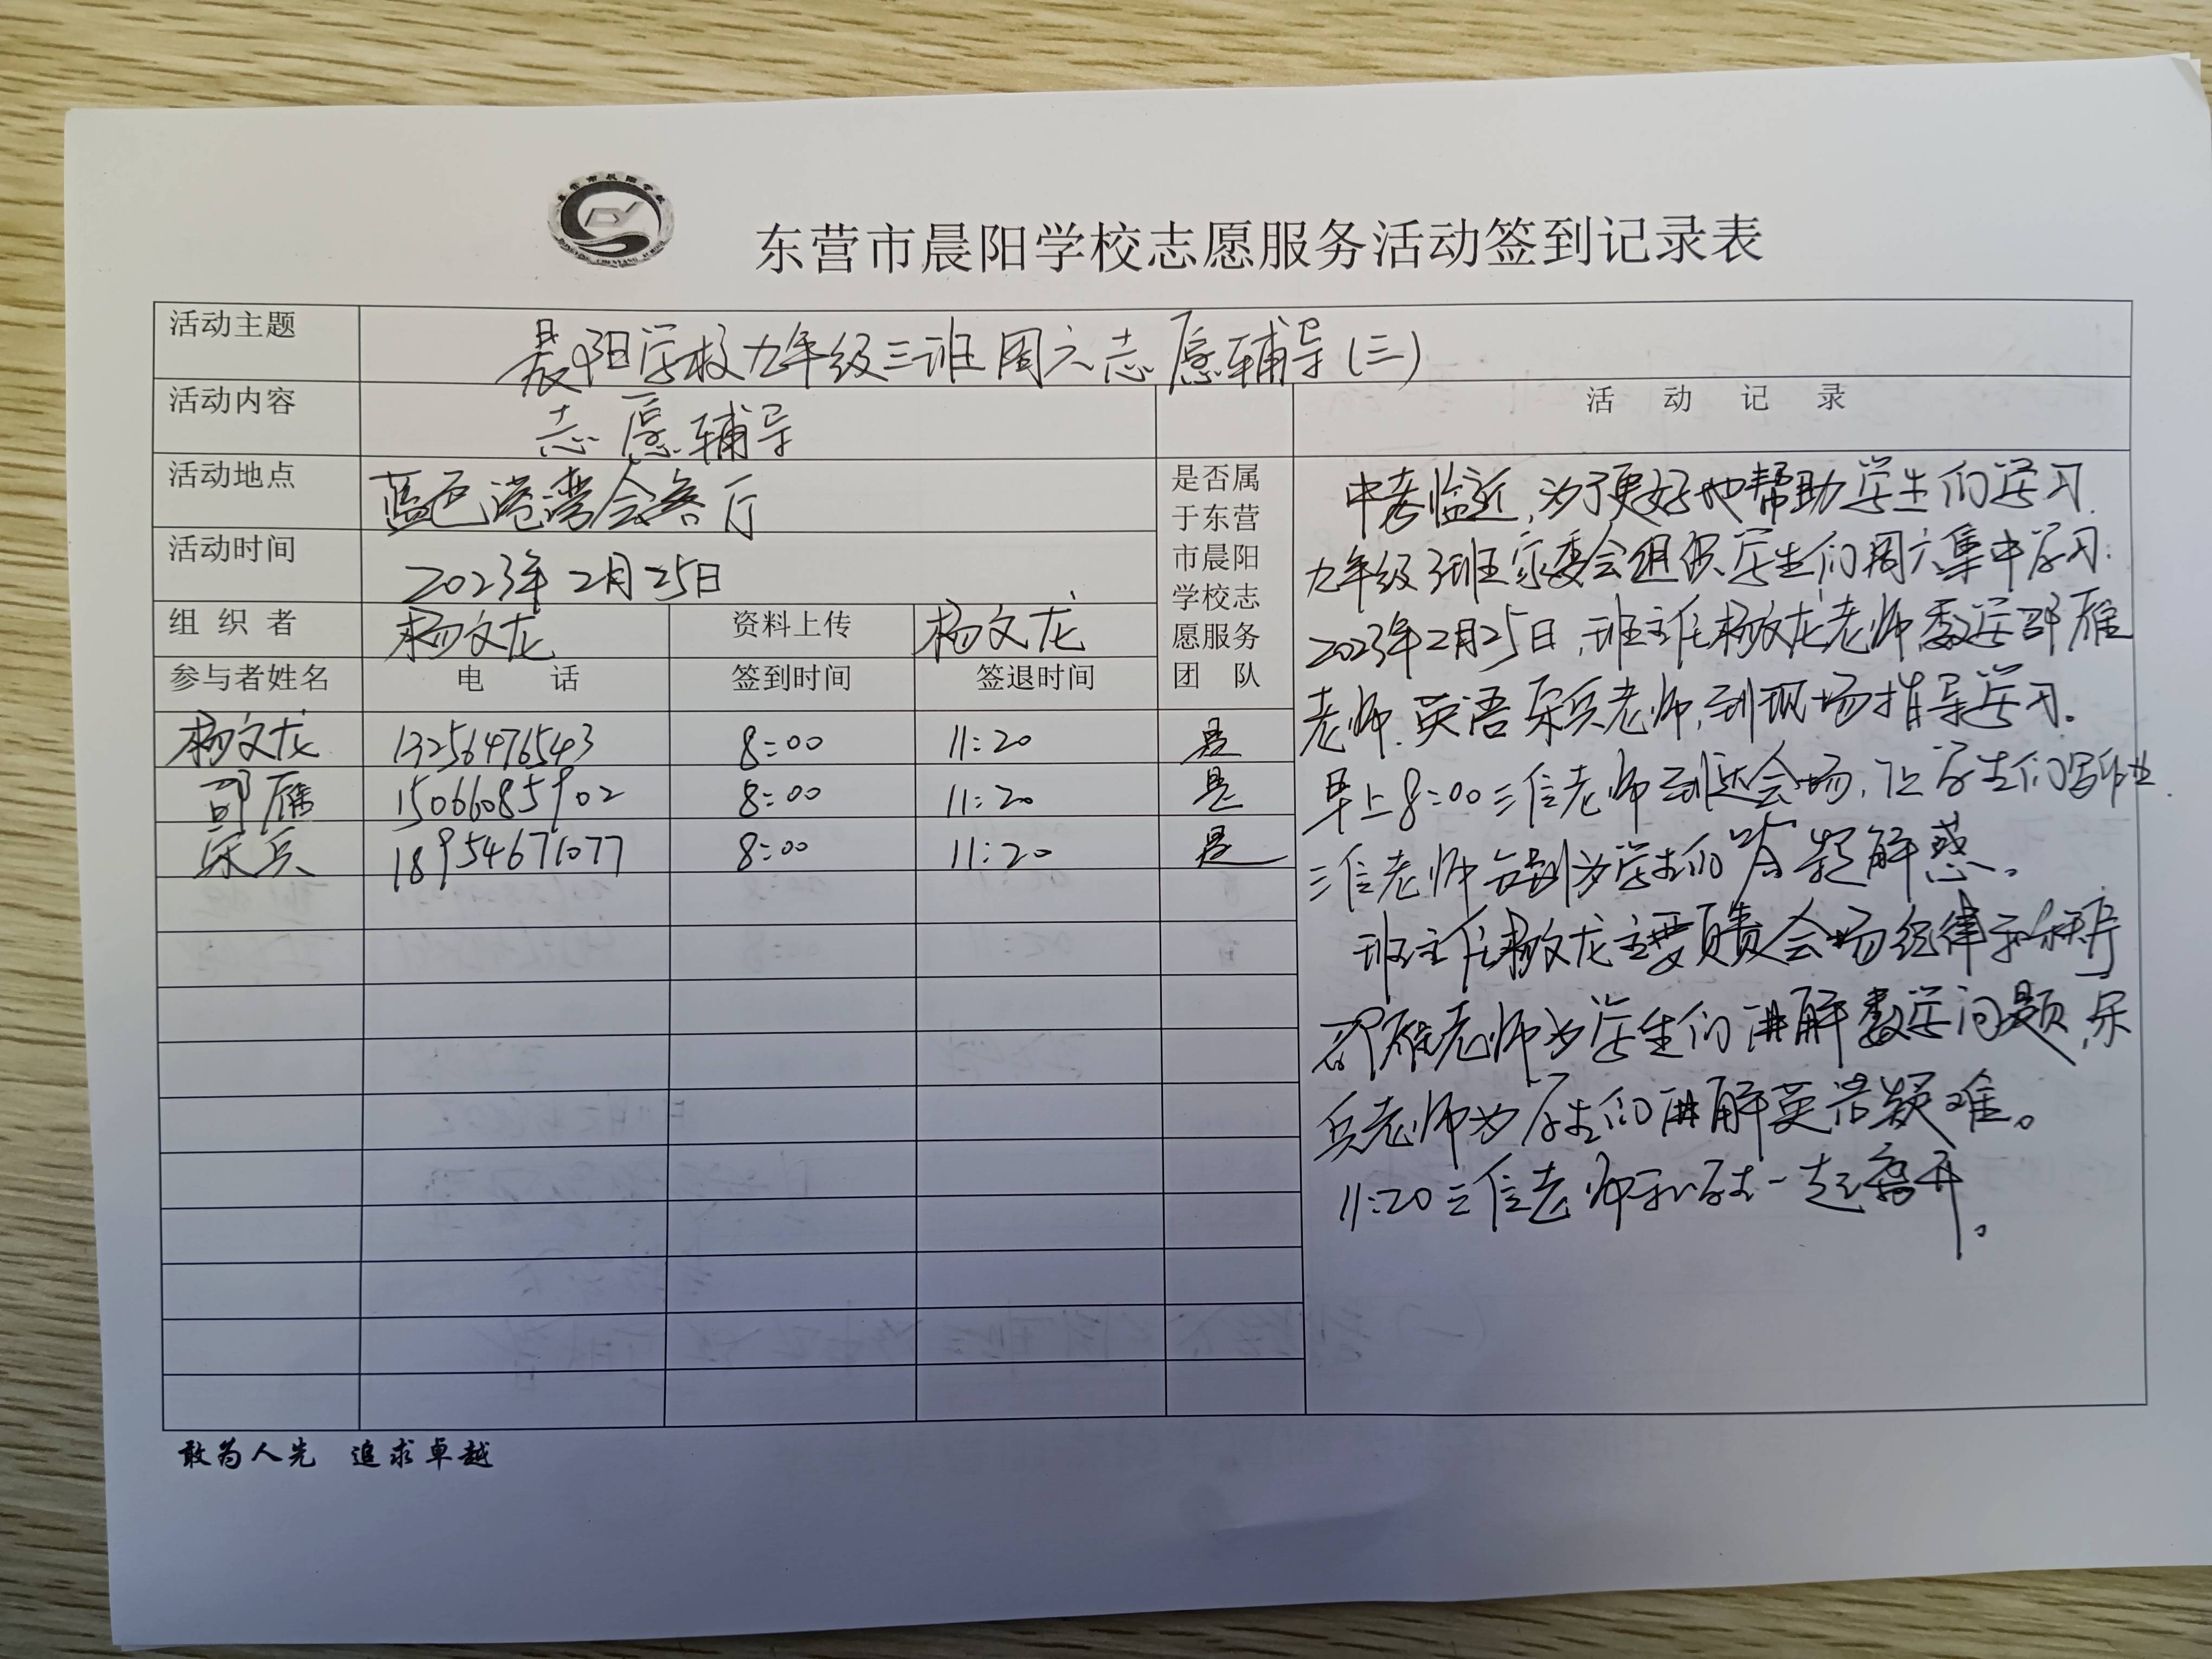 东营市晨阳学校志愿服务活动签到记录表
活动主题 晨阳学校九年级三班周六志愿辅导(三)
活动内容 志愿辅导 活动记录
活动地点 蓝色港湾会客厅
活动时间 2023年2月25日
组织者 杨文龙 资料上传 杨文龙
是否属
于东营
市晨阳
学校志
愿服务
团队
参与者姓名 电话 签到时间 签退时间
杨文龙 13256476543 8:00 11:20 是
邵雁 15066085902 8:00 11:20 是
宋兵 18954671077 8:00 11:20 是
中考临近,为了更好地帮助学生们学习.
九年级3班家委会组织学生们周六集中学习.
2023年2月25日,班主任杨文龙老师,数学邵雁
老师.英语宋兵老师,到现场指导学习.
早上8:00三位老师到达会场,让学生们写作业.
三位老师分别为学生们答疑解惑。
班主任杨文龙主要负责会场纪律和秩序
邵雁老师为学生们讲解数学问题,宋
兵老师为学生们讲解英语疑难。
11:20三位老师和学生一起离开。
敢为人先 追求卓越